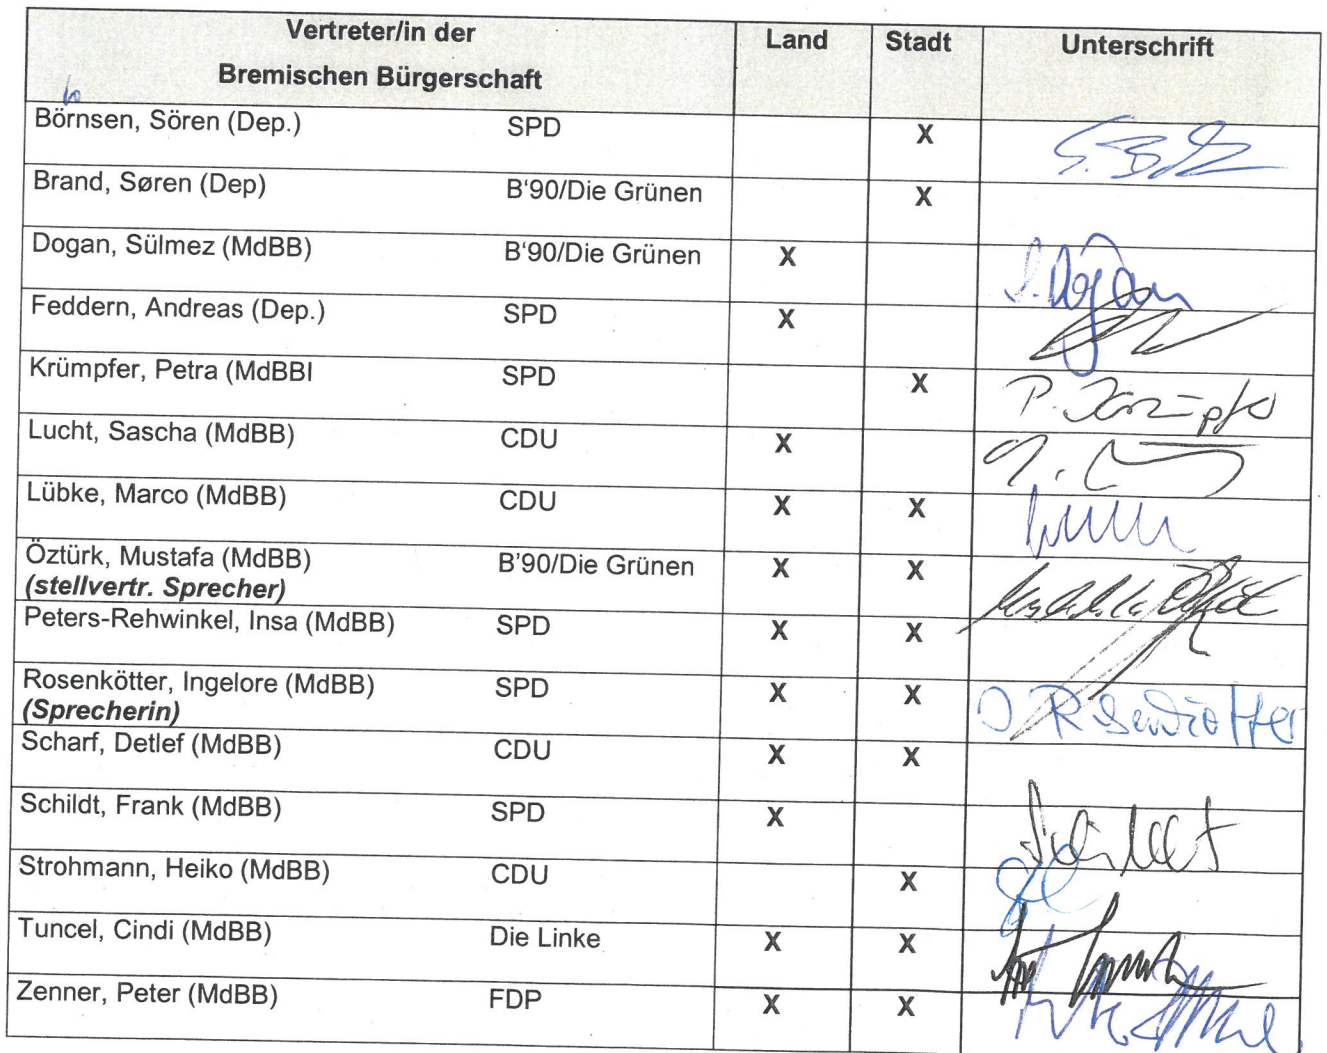 Vertreter/in der Land Stadt Unterschrift
Bremischen Bürgerschaft
Börnsen, Sören (Dep.) SPD X
Brand, Søren (Dep) B‘90/Die Grünen X
Dogan, Sülmez (MdBB) B‘90/Die Grünen X S. Dogan
Feddern, Andreas (Dep.) SPD X
Krümpfer, Petra (MdBBI SPD X P. Krümpfer
Lucht, Sascha (MdBB) CDU X
Lübke, Marco (MdBB) CDU X X
Öztürk, Mustafa (MdBB) B’90/Die Grünen X X
(stellvertr. Sprecher)
Peters-Rehwinkel, Insa (MdBB) SPD X X
Rosenkötter, Ingelore (MdBB) SPD X X I. Rosenkötter
(Sprecherin)
Scharf, Detlef (MdBB) CDU X X
Schildt, Frank (MdBB) SPD X
Strohmann, Heiko (MdBB) CDU X
Tuncel, Cindi (MdBB) Die Linke X X
Zenner, Peter (MdBB) FDP X X